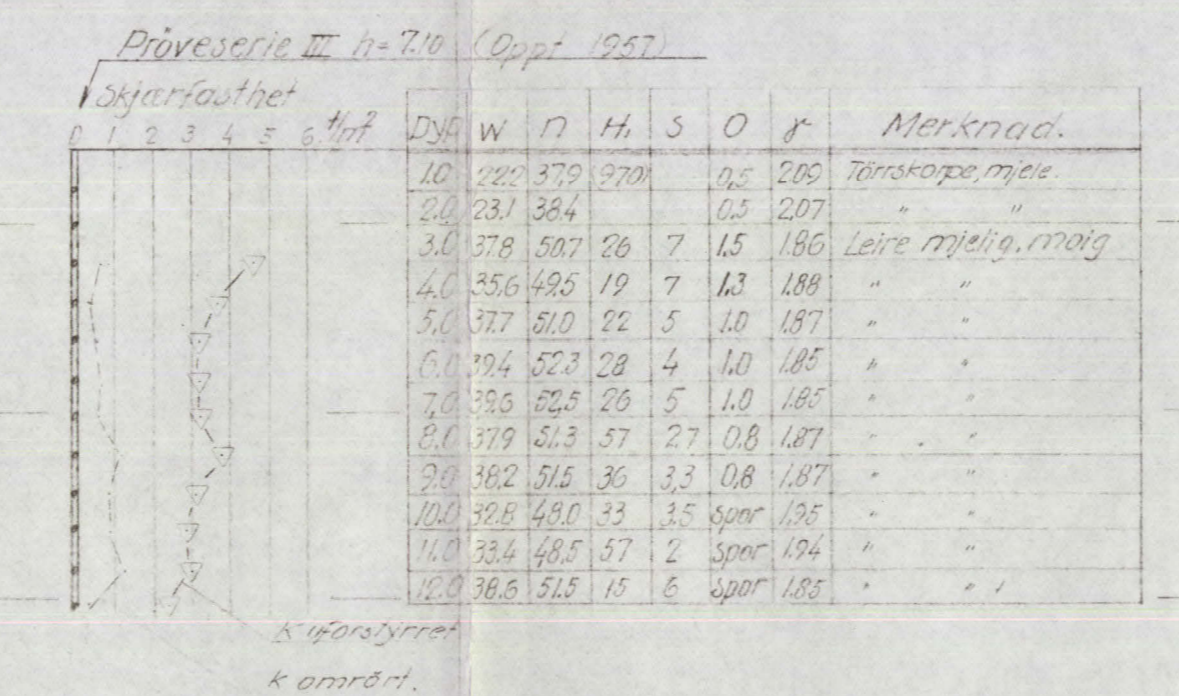 Pröveserie III h=7.10 (Oppt 1957)
Skjærfasthet
0 1 2 3 4 5 6 t/m²
Dyp W n H₁ S O γ Merknad.
1.0 22.2 37.9 (970) 0,5 2.09 Törrskorpe, mjele.
2.0 23.1 38.4 0.5 2.07 " "
3.0 37.8 50.7 26 7 1.5 1.86 Leire mjelig, moig
4.0 35.6 49.5 19 7 1.3 1.88 " "
5.0 37.7 51.0 22 5 1.0 1.87 " "
6.0 39.4 52.3 28 4 1.0 1.85 " "
7,0 39.6 52,5 26 5 1.0 1.85 " "
8.0 37.9 51.3 57 2.7 0.8 1.87 " "
9.0 38.2 51.5 36 3,3 0,8 1.87 " "
10.0 32.8 48.0 33 3.5 spor 1.95 " "
11.0 33.4 48.5 57 2 spor 1.94 " "
12.0 38.6 51.5 15 6 spor 1.85 " "
K uforstyrret
k omrört.